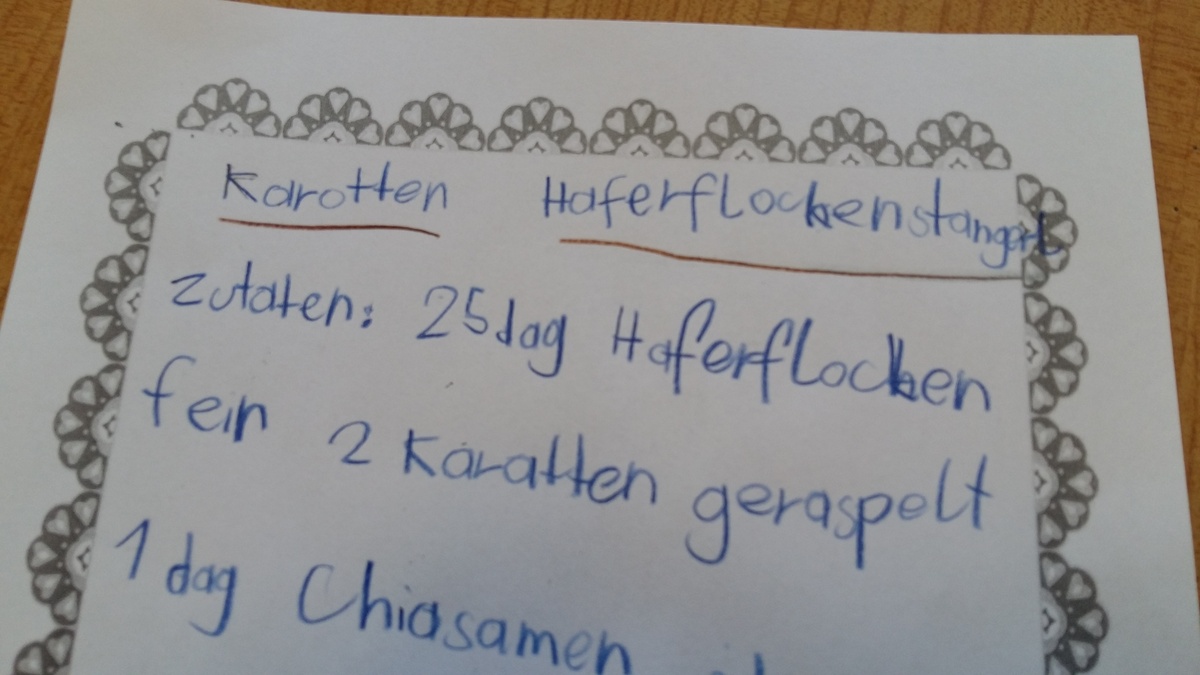 Karotten Haferflockenstangerl
Zutaten: 25 dag Haferflocken
fein 2 Karatten geraspelt
1 dag Chiasamen